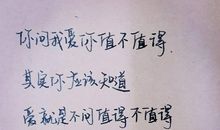 你问我爱你值不值得
其实你应该知道
爱就是不问值得不值得